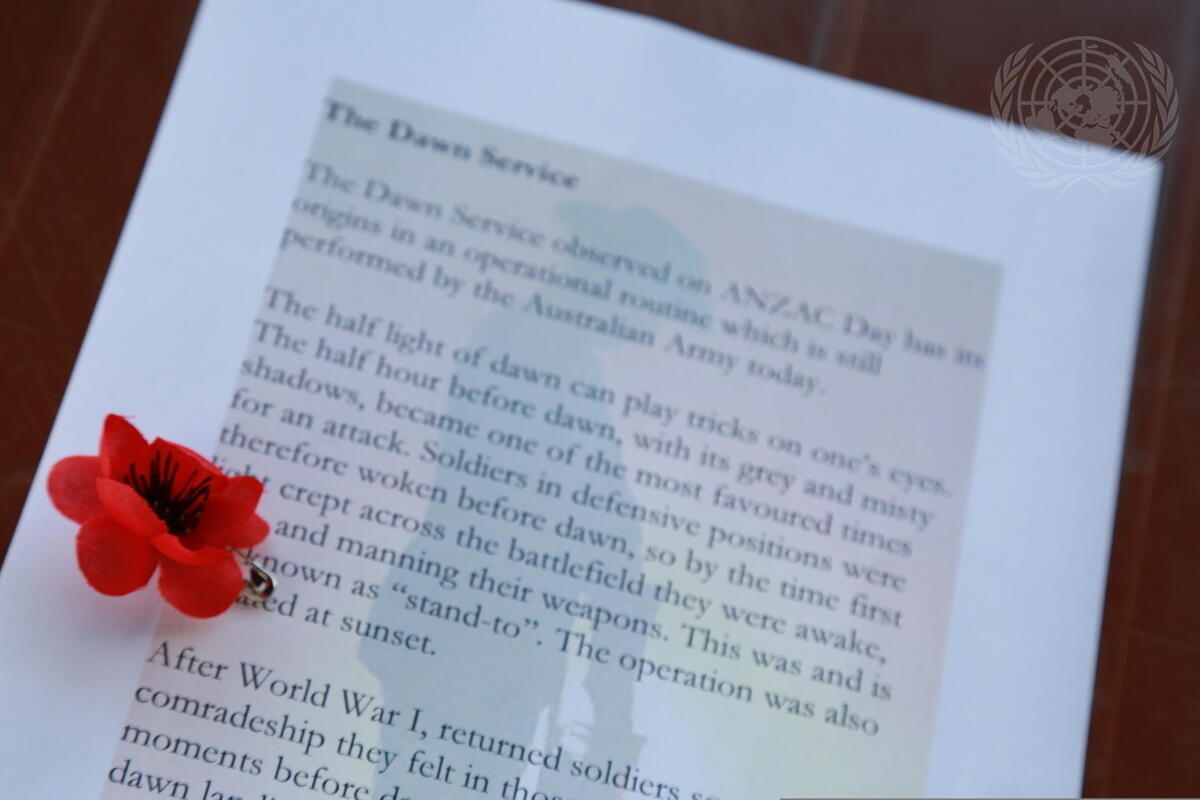 The Dawn Service
The Dawn Service observed on ANZAC Day has its
origins in an operational routine which is still
performed by the Australian Army today.
The half light of dawn can play tricks on one's eyes.
The half hour before dawn, with its grey and misty
shadows, became one of the most favoured times
for an attack. Soldiers in defensive positions were
therefore woken before dawn, so by the time first
light crept across the battlefield they were awake,
and manning their weapons. This was and is
known as “stand-to”. The operation was also
at sunset.
After World War I, returned soldiers
comradeship they felt in
moments before
dawn